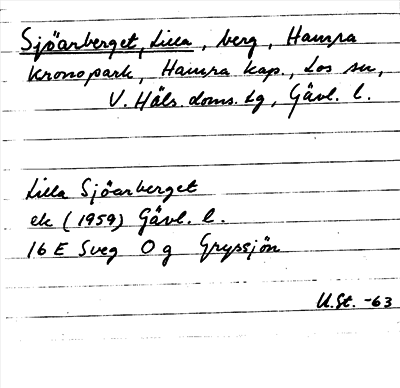 Sjöarberget, Lilla, berg, Hamra
kronopark, Hamra kap., Los sn,
V. Häls. doms. lg, Gävl. l.
Lilla Sjöarberget
ek (1959) Gävl. l.
16 E Sveg 0 g Gryssjön
U.St. -63